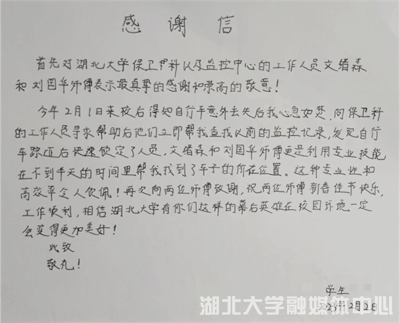 感谢信
首先对湖北大学保卫处科以及监控中心的工作人员文
和刘国华师傅表示最真挚的感谢和崇高的敬意!
今年2月1日来校后得知自行车意外丢失后我心急如焚,向保卫科
的工作人员寻求帮助后他们立即帮我查找以前的监控记录,发现自行
车踪迹后快速锁定了人员,文 和刘国华师傅更是利用专业技能
在不到半天的时间里帮我找到了车子的所在位置。这种专业性和
高效率令人钦佩!再次向两位师傅致谢,祝两位师傅新春佳节快乐,
工作顺利,相信湖北大学有你们这样的幕后英雄在校园环境一定
会变得更加美好!
此致
敬礼!
学生
2月2日
湖北大学融媒体中心